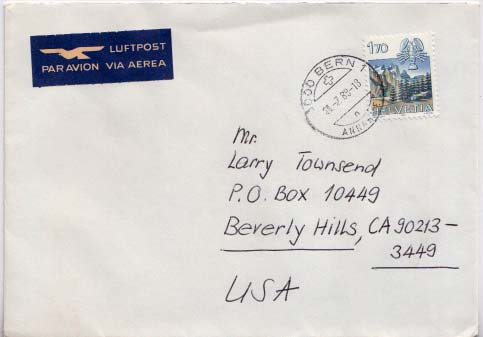 LUFTPOST
PAR AVION VIA AEREA
BERN 1
ANNAHME
1.70
HELVETIA
Mr.
Larry Townsend
P.O. Box 10449
Beverly Hills, CA 90213-
3449
USA